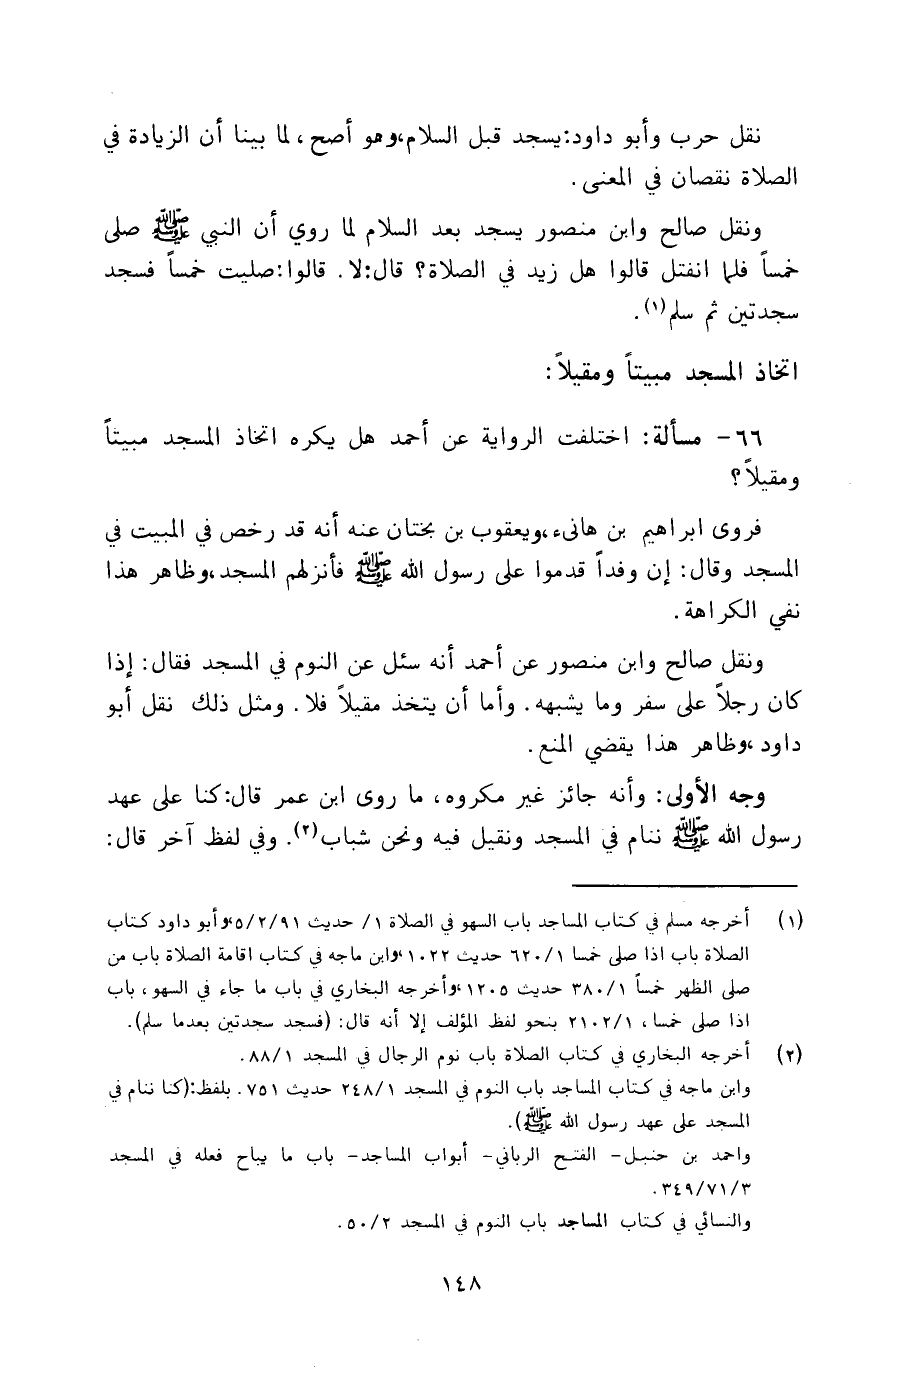 نقل حرب وأبو داود:يسجد قبل السلام،وهو أصح، لما بينا أن الزيادة في
الصلاة نقصان في المعنى.
ونقل صالح وابن منصور يسجد بعد السلام لما روي أن النبي ﷺ صلى
خمساً فلما انفتل قالوا هل زيد في الصلاة؟ قال:لا. قالوا:صليت خمساً فسجد
سجدتين ثم سلم(١).
اتخاذ المسجد مبيتاً ومقيلاً:
٦٦- مسألة: اختلفت الرواية عن أحمد هل يكره اتخاذ المسجد مبيتاً
ومقيلاً؟
فروى ابراهيم بن هانىء،ويعقوب بن بختان عنه أنه قد رخص في المبيت في
المسجد وقال: إن وفداً قدموا على رسول الله ﷺ فأنزلهم المسجد،وظاهر هذا
نفي الكراهة.
ونقل صالح وابن منصور عن أحمد أنه سئل عن النوم في المسجد فقال: إذا
كان رجلاً على سفر وما يشبهه. وأما أن يتخذ مقيلاً فلا. ومثل ذلك نقل أبو
داود،وظاهر هذا يقضي المنع.
وجه الأولى: وأنه جائز غير مكروه، ما روى ابن عمر قال:كنا على عهد
رسول الله ﷺ ننام في المسجد ونقيل فيه ونحن شباب(٢). وفي لفظ آخر قال:
(١) أخرجه مسلم في كتاب المساجد باب السهو في الصلاة ١/ حديث ٥/٢/٩١،وأبو داود كتاب
الصلاة باب اذا صلى خمسا ٦٢٠/١ حديث ١٠٢٢،وابن ماجه في كتاب اقامة الصلاة باب من
صلى الظهر خمساً ٣٨٠/١ حديث ١٢٠٥،وأخرجه البخاري في باب ما جاء في السهو، باب
اذا صلى خمسا، ٢١٠٢/١ بنحو لفظ المؤلف إلا أنه قال: (فسجد سجدتين بعدما سلم).
(٢) أخرجه البخاري في كتاب الصلاة باب نوم الرجال في المسجد ٨٨/١.
وابن ماجه في كتاب المساجد باب النوم في المسجد ٢٤٨/١ حديث ٧٥١. بلفظ:(كنا ننام في
المسجد على عهد رسول الله ﷺ).
واحمد بن حنبل- الفتح الرباني- أبواب المساجد- باب ما يباح فعله في المسجد
٣٤٩/٧١/٣.
والنسائي في كتاب المساجد باب النوم في المسجد ٥٠/٢.
١٤٨